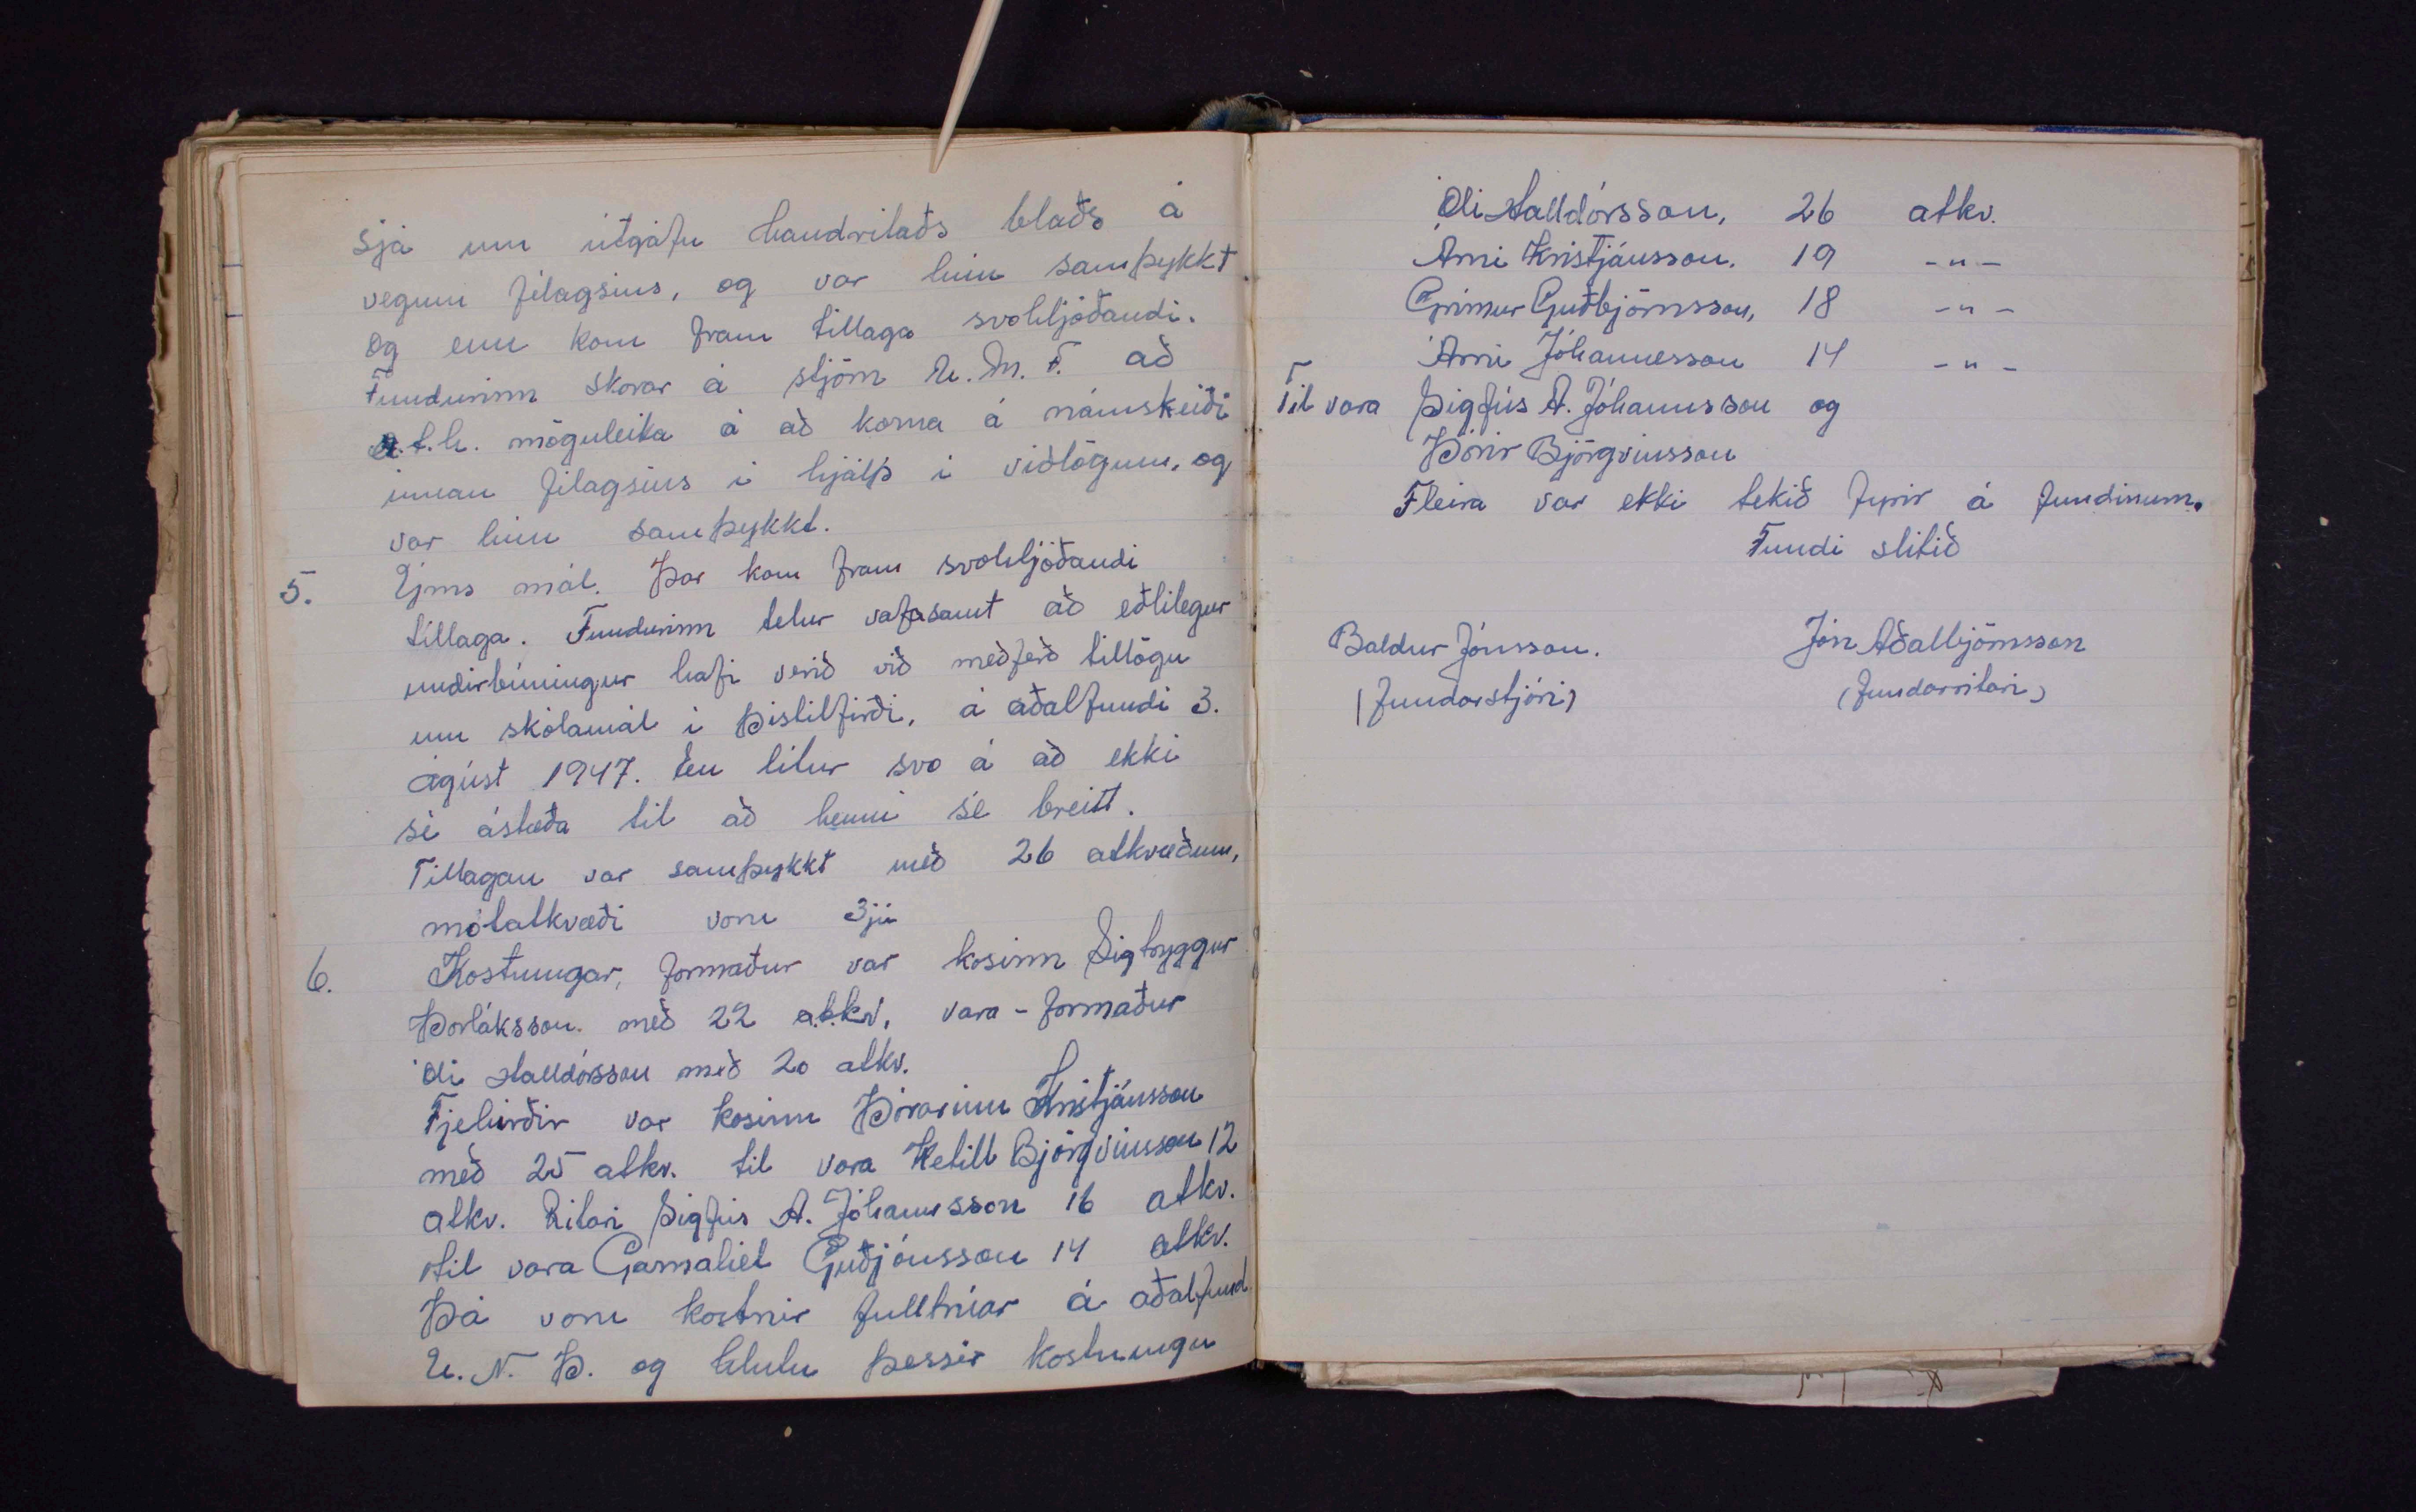 sjá um útgáfu handritaðs blaðs á
vegum félagsins, og var hún samþykkt
og enn kom fram tillaga svohljóðandi.
Fundurinn skorar á stjórn U.M.F. að
a.t.h. möguleika á að koma á námskeiði
innan félagsins í hjálp í viðlögum, og
var hún samþykkt.
5. Ýms mál. Þar kom fram svohljóðandi
tillaga. Fundurinn telur vafasamt að eðlilegur
undirbúningur hafi verið við meðferð tillögu
um skólamál í Þistilfirði, á aðalfundi 3.
ágúst 1947. En lítur svo á að ekki
sé ástæða til að henni sé breitt.
Tillagan var samþykkt með 26 atkvæðum,
mótatkvæði voru 3jú
6. Kostningar, formaður var kosinn Sigtryggur
Þorláksson. með 22 atkv, vara-formaður
Óli Halldórsson með 20 atkv.
Fjehirðir var kosinn Þórarinn Kristjánsson
með 25 atkv. til vara Ketill Björgvinsson 12
atkv. Ritari Sigfús A. Jóhannsson 16 atkv.
til vara Gamalíel Guðjónsson 14 atkv.
Þá voru kostnir fulltrúar á aðalfund
U.N.Þ. og hlutu þessir kostningu
Óli Halldórsson, 26 atkv.
Árni Kristjánsson. 19 -"-
Grímur Guðbjörnsson, 18 -"-
Árni Jóhannesson 14 -"-
Til vara Sigfús A. Jóhannsson og
Þórir Björgvinsson
Fleira var ekki tekið fyrir á fundinum.
Fundi slitið
Baldur Jónsson. Jón Aðalbjörnsson
(fundarstjóri) (fundarritari)